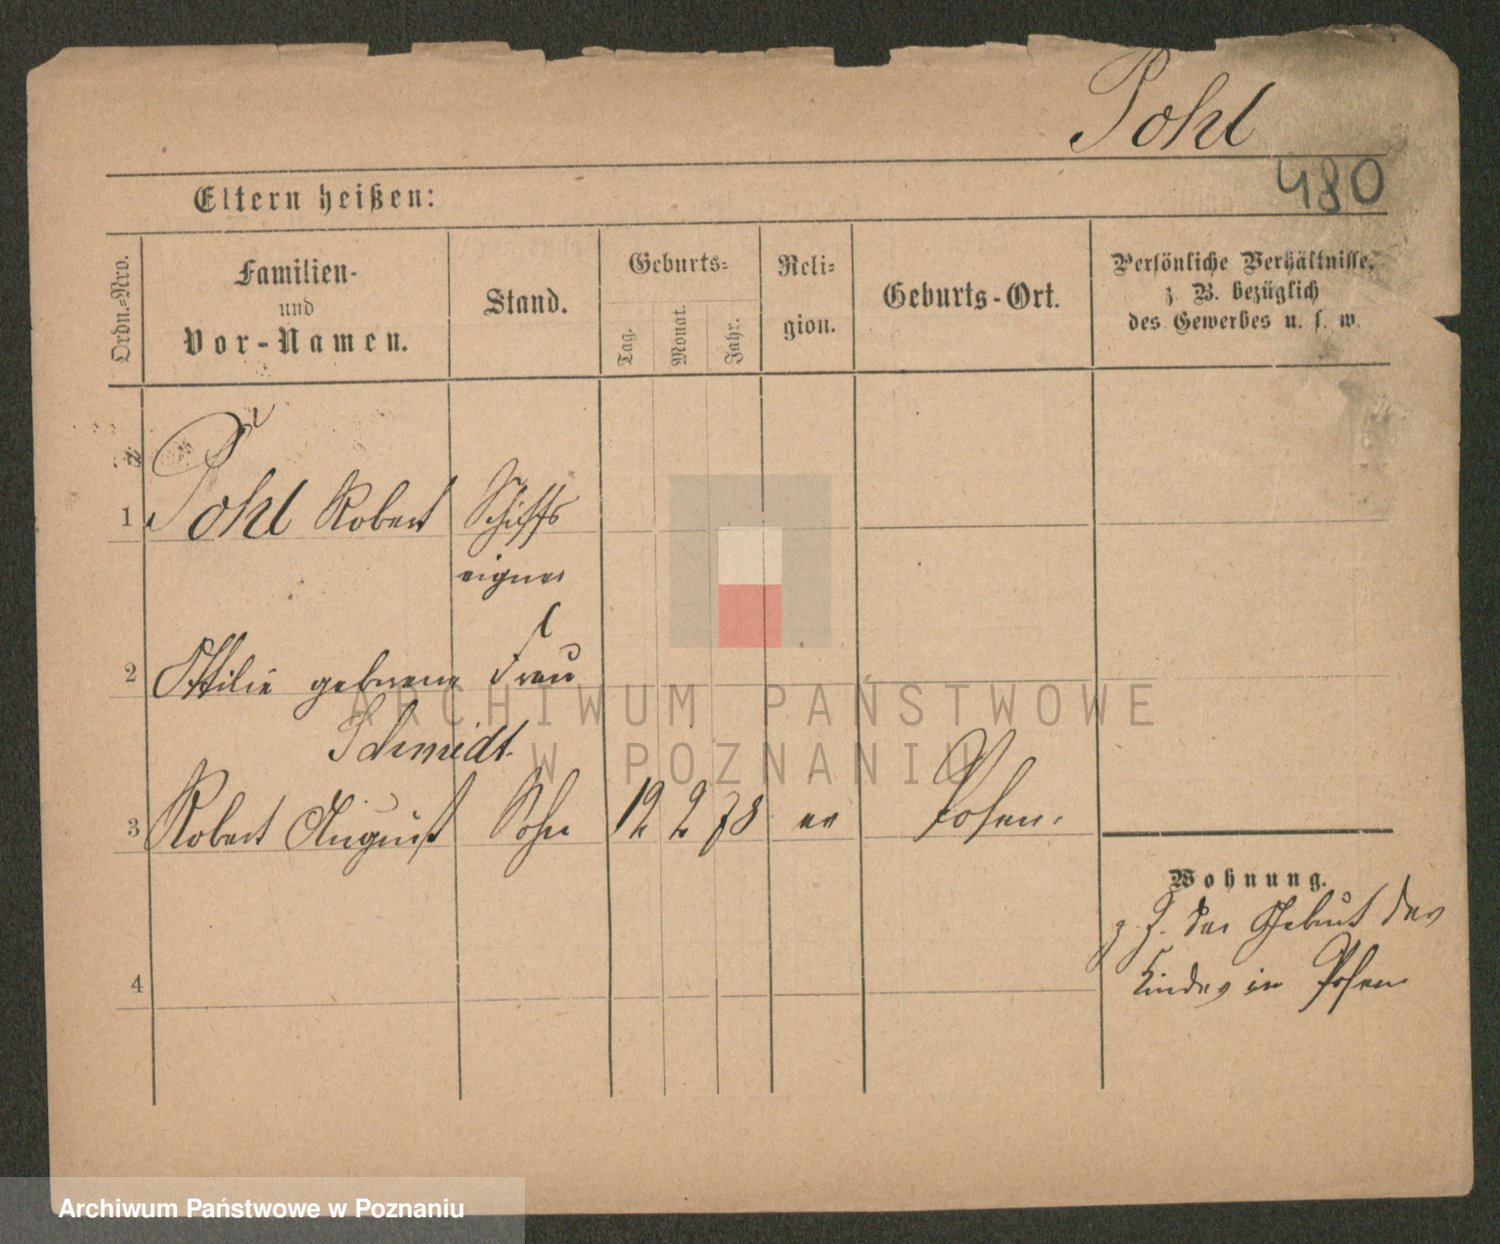 Pohl
480
Eltern heißen:
Ordn.=Nro.
Familien-
und
Vor-Namen.
Stand.
Geburts=
Tag.
Monat.
Jahr.
Reli=
gion.
Geburts-Ort.
Persönliche Verhältnisse,
z. B. bezüglich
des Gewerbes u. s. w.
1 Pohl Robert Schiffs
eigner
2 Ottilie geborene Frau
Schmidt.
3 Robert August Sohn 12 2 78 ev Posen.
Wohnung.
z. Z. der Geburt des
Kindes in Posen
4
ARCHIWUM PAŃSTWOWE
W POZNANIU
Archiwum Państwowe w Poznaniu